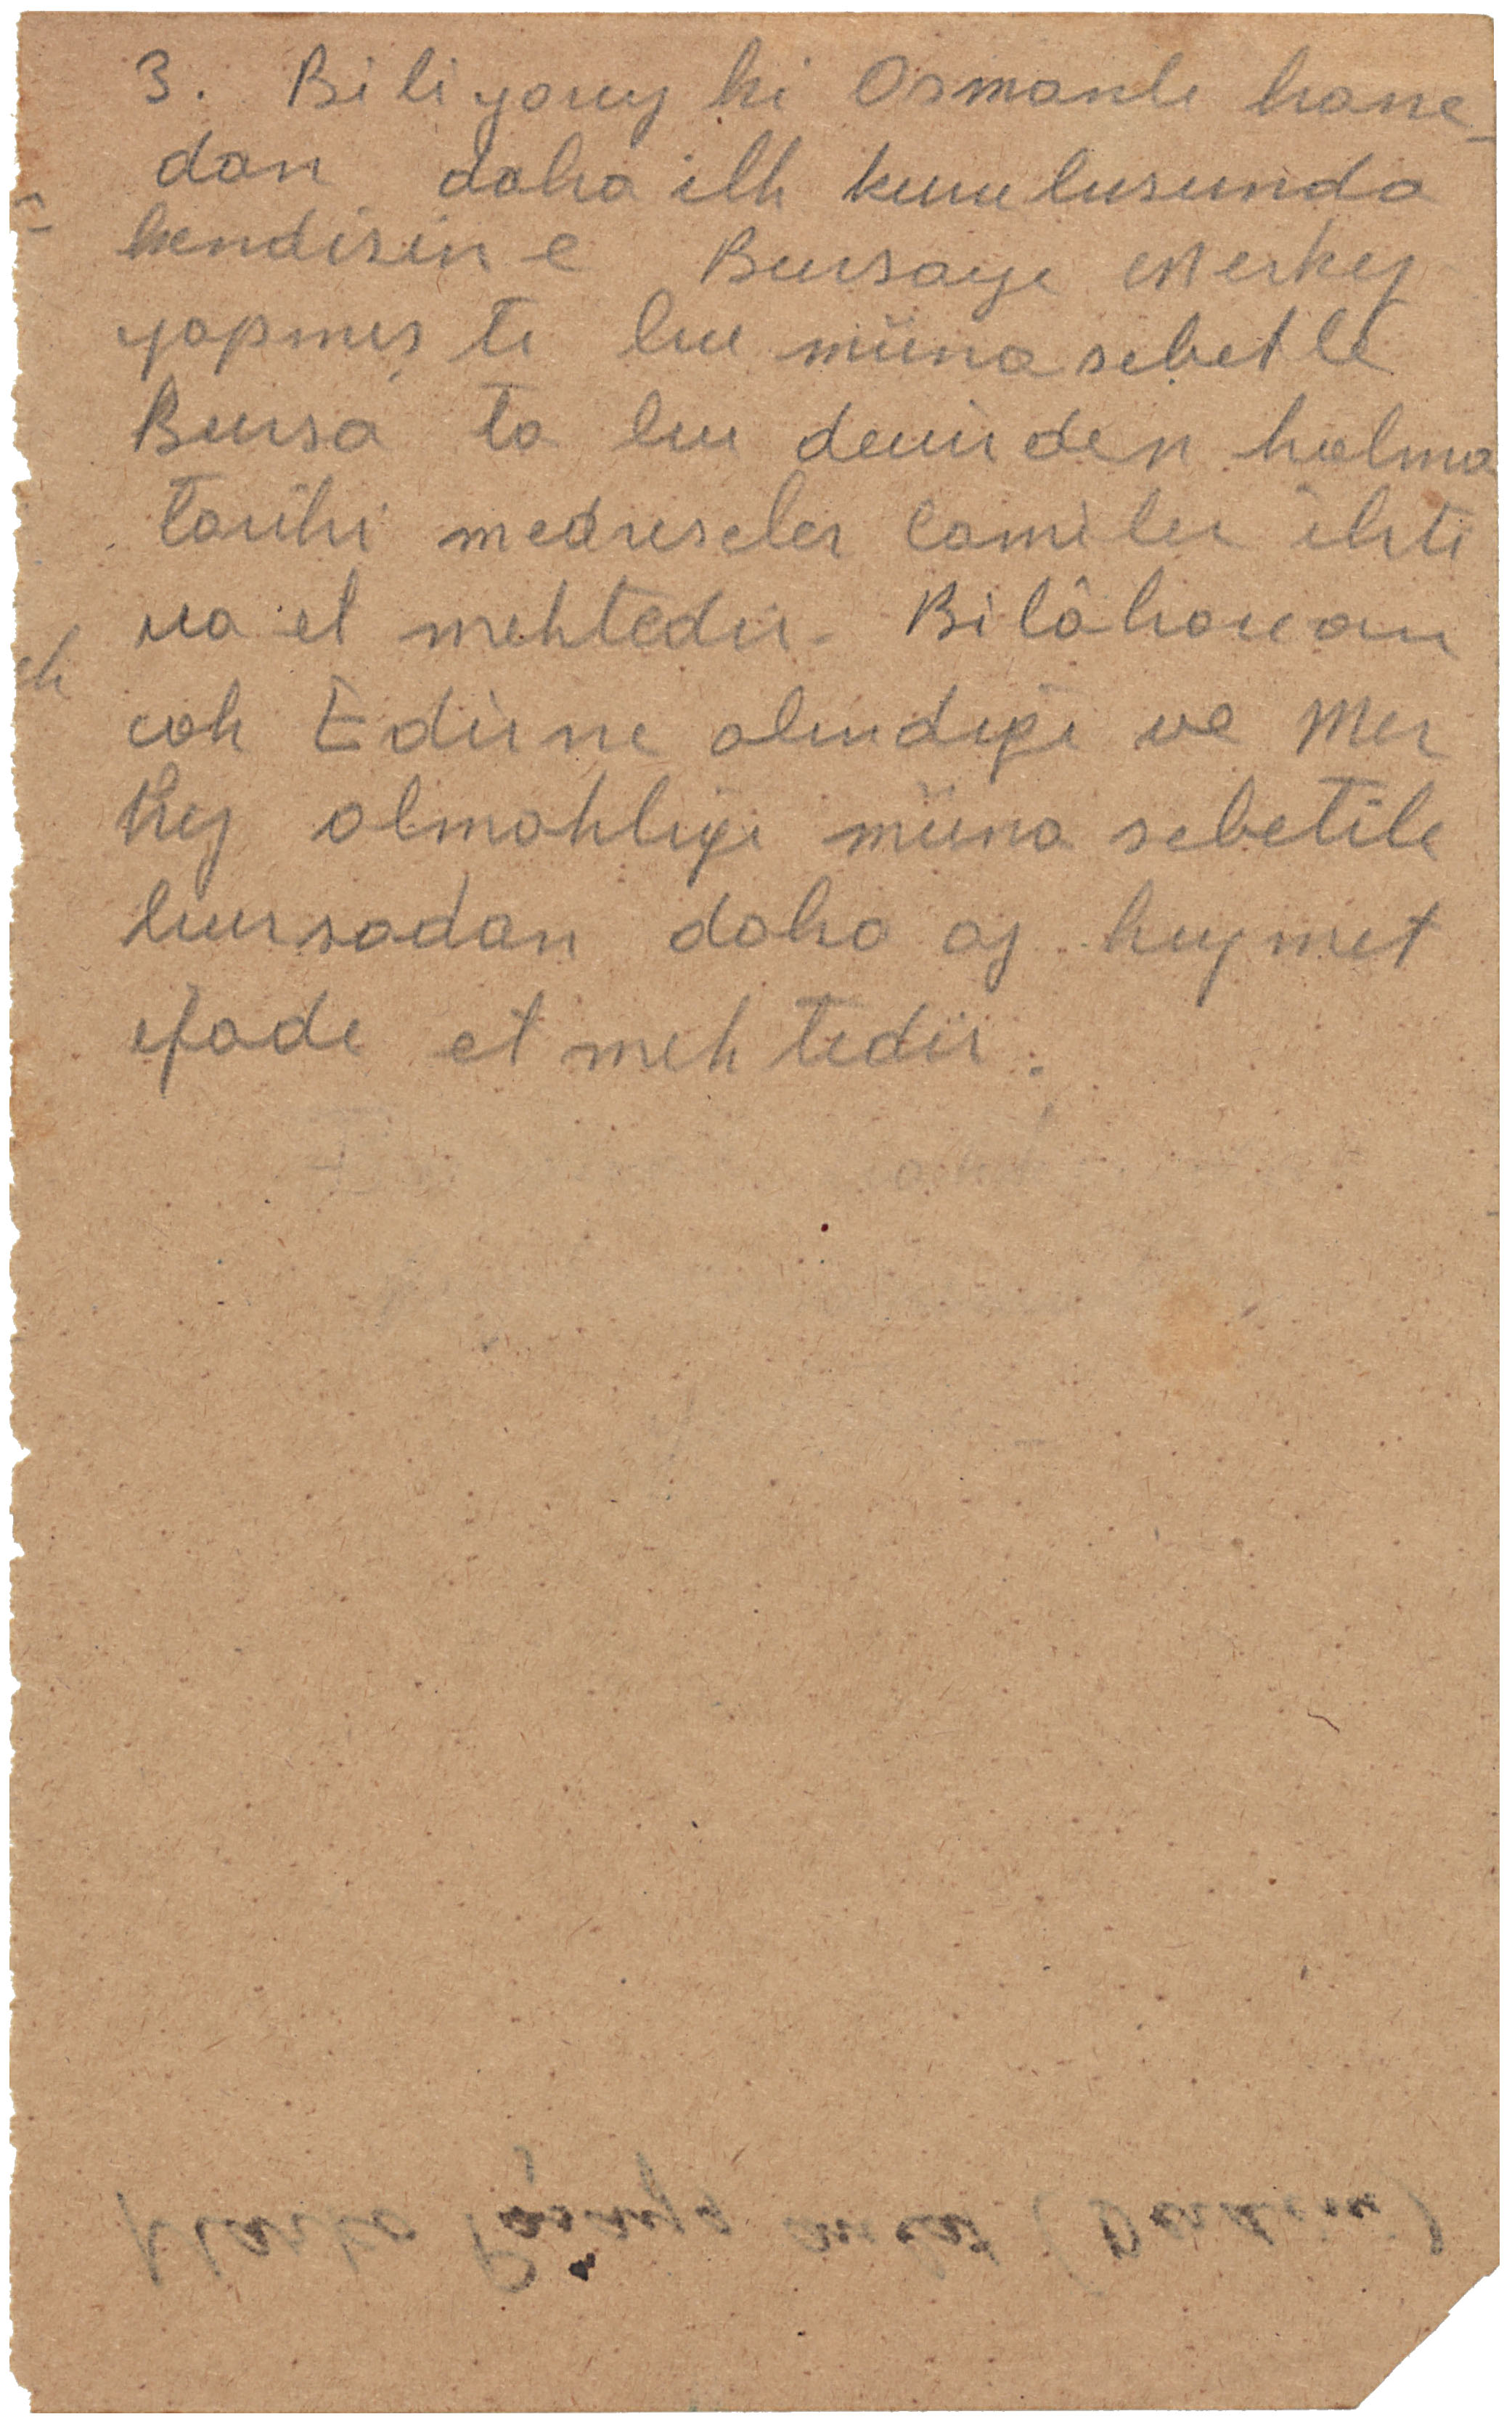 3. Biliyoruz ki Osmanlı hane-
dan daha ilk kuruluşunda
kendisine Bursayı merkez
yapmıştı bu münasebetle
Bursa ta bu devirden kalma
tarihi medreseler camiler ihti
va etmektedir. Bilâhara
cok Edirne alındığı ve Mer
kez olmaklığı münasebetile
bursadan daha az kıymet
ifade etmektedir.
Marko Paşaya anlat (Derdini)